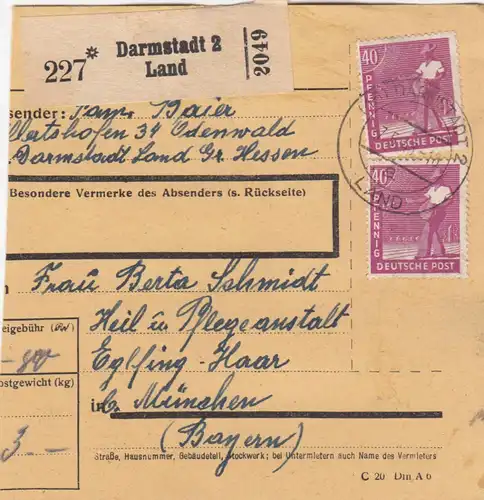 Darmstadt 2
227* Land
2049
40
PFENNIG
DEUTSCHE POST
40
PFENNIG
DEUTSCHE POST
LAND
sender: Fam. Baier
34 Odenwald
Darmstadt Land Gr. Hessen
Besondere Vermerke des Absenders (s. Rückseite)
Frau Berta Schmidt
Heil u Pflegeanstalt
Eglfing-Haar
in b. München
(Bayern)
eigebühr
-80
ostgewicht (kg)
3.-
Straße, Hausnummer, Gebäudeteil, Stockwerk; bei Untermietern auch Name des Vermieters
C 20 Din A 6